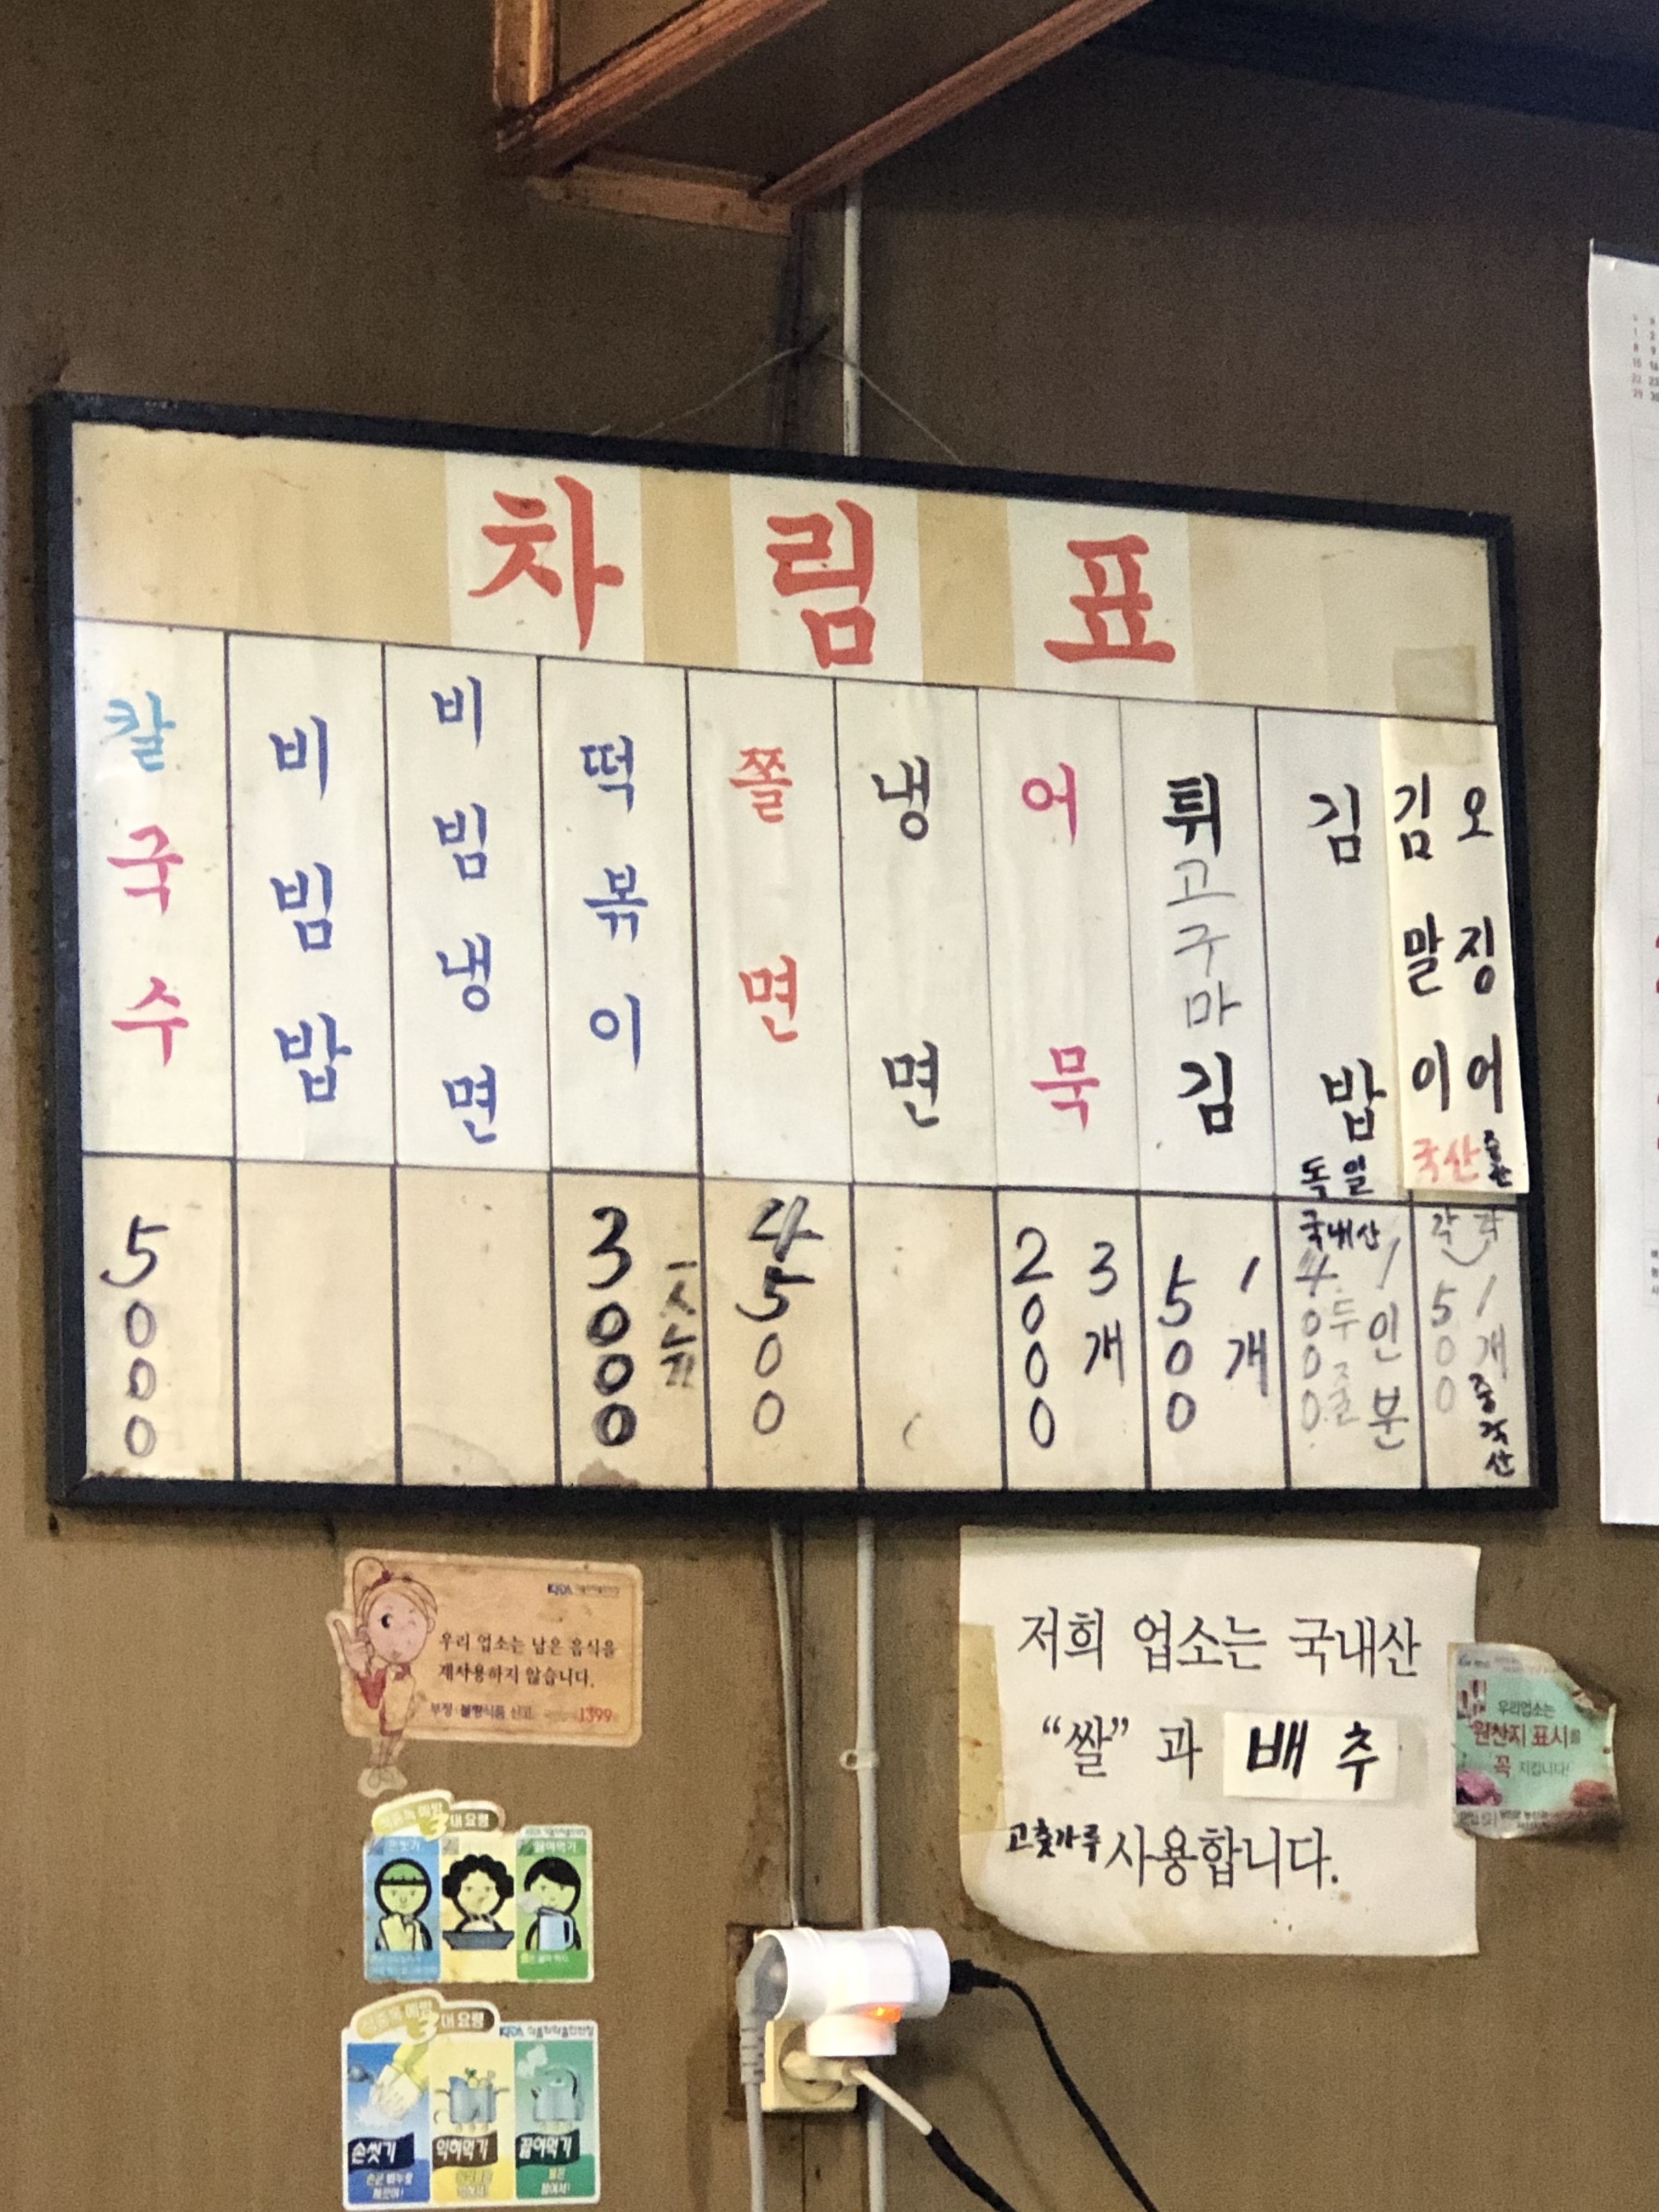 차림표
칼국수
5000
비빔밥
비빔냉면
떡볶이
3000
쫄면
4500
냉면
어묵
2000 3개
튀고구마김
500 1개
김밥
독일
국내산
4000 두줄 1인분
김말이 국산
오징어
각 각
500 1개
중국산
우리 업소는 남은 음식을
재사용하지 않습니다.
부정·불량식품 신고 1399
저희 업소는 국내산
“쌀” 과 배추
고춧가루 사용합니다.
우리업소는
원산지 표시를
꼭 지킵니다!
예방 3대 요령
손씻기
끓여먹기
예방 3대 요령
손씻기
익혀먹기
끓여먹기